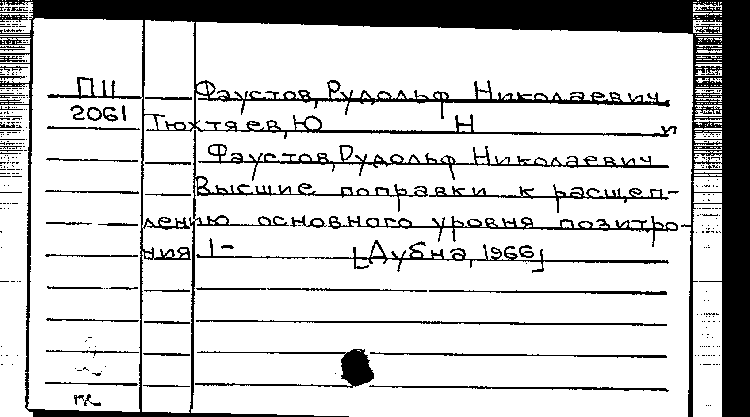 П11 Фаустов, Рудольф Николаевич
2061 Тюхтяев, Ю Н и
Фаустов, Рудольф Николаевич
Высшие поправки к расщеп-
лению основного уровня позитро-
ния 1- [Дубна, 1966]